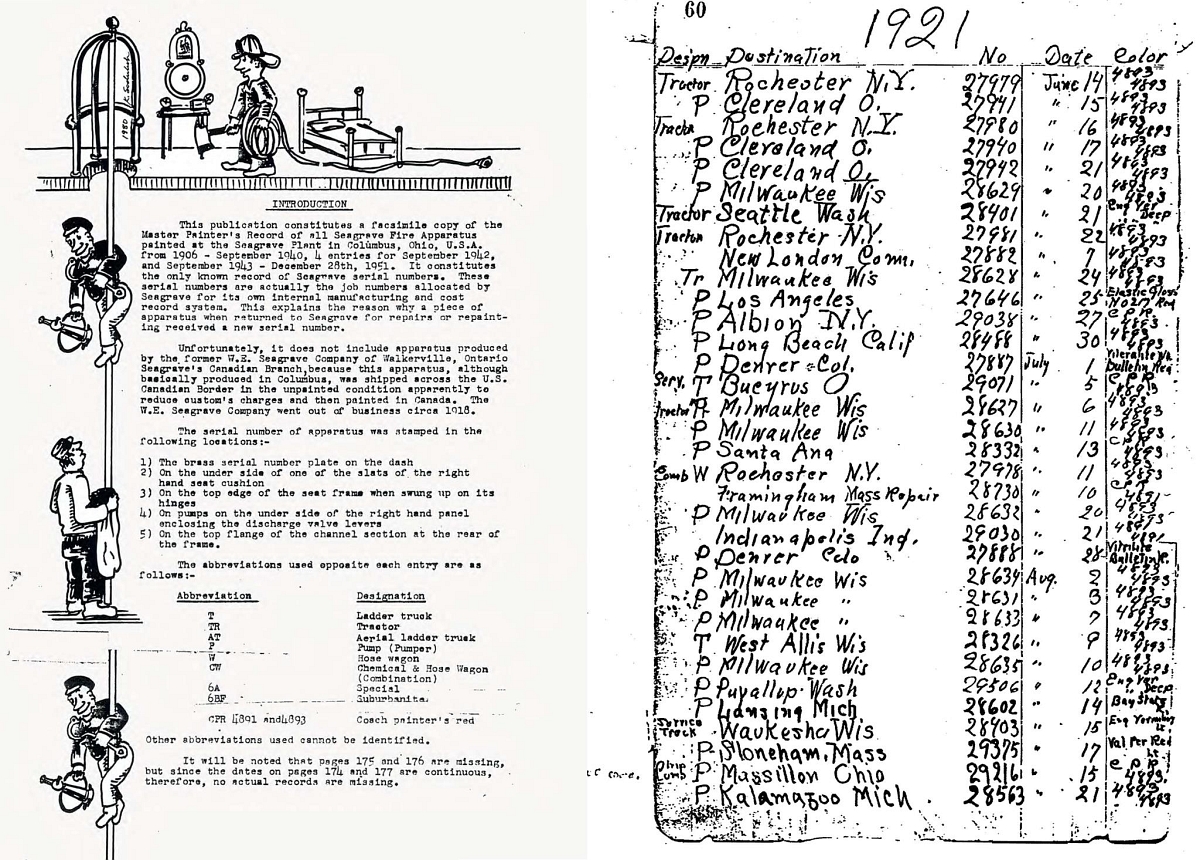 1980 C. Soderlick
INTRODUCTION
This publication constitutes a facsimile copy of the
Master Painter's Record of all Seagrave Fire Apparatus
painted at the Seagrave Plant in Columbus, Ohio, U.S.A.
from 1906 - September 1940, 4 entries for September 1942,
and September 1943 - December 28th, 1951. It constitutes
the only known record of Seagrave serial numbers. These
serial numbers are actually the job numbers allocated by
Seagrave for its own internal manufacturing and cost
record system. This explains the reason why a piece of
apparatus when returned to Seagrave for repairs or repaint-
ing received a new serial number.
Unfortunately, it does not include apparatus produced
by the former W.E. Seagrave Company of Walkerville, Ontario
Seagrave's Canadian Branch,because this apparatus, although
basically produced in Columbus, was shipped across the U.S.
Canadian Border in the unpainted condition apparently to
reduce custom's charges and then painted in Canada. The
W.E. Seagrave Company went out of business circa 1918.
The serial number of apparatus was stamped in the
following locations:-
1) The brass serial number plate on the dash
2) On the under side of one of the slats of the right
hand seat cushion
3) On the top edge of the seat frame when swung up on its
hinges
4) On pumps on the under side of the right hand panel
enclosing the discharge valve levers
5) On the top flange of the channel section at the rear of
the frame.
The abbreviations used opposite each entry are as
follows:-
Abbreviation Designation
T Ladder truck
TR Tractor
AT Aerial ladder truck
P Pump (Pumper)
W Hose wagon
CW Chemical & Hose Wagon
(Combination)
6A Special
6BF Suburbanite
CPR 4891 and4893 Coach painter's red
Other abbreviations used cannot be identified.
It will be noted that pages 175 and 176 are missing,
but since the dates on pages 174 and 177 are continuous,
therefore, no actual records are missing.
60
1921
Desgn Destination No Date Color
Tractor Rochester N.Y. 27979 June 14 4893 4893
P Cleveland O. 27941 " 15 4893 4893
Tractor Rochester N.Y. 27980 " 16 4893 4893
P Cleveland O. 27940 " 17 4893 4893
P Cleveland O. 27942 " 21 4893 4893
P Milwaukee Wis 28629 " 20 4893 4893
Tractor Seattle Wash 28401 " 21 Deep
Tractor Rochester N.Y. 27981 " 22 4893 4893
New London Conn. 27882 " 7 4893 4893
Tr Milwaukee Wis 28628 " 24 4893 4893
P Los Angeles 27646 " 25 Elastic Gloss No 27 Red
P Albion N.Y. 29038 " 27 C P R 4893
P Long Beach Calif 28488 " 30 4893 4893
P Denver Col. 27887 July 1 Bulletin Red
Serv. T Bucyrus O 29071 " 5 C P R 4893
Tractor Milwaukee Wis 28627 " 6 4893 4893
P Milwaukee Wis 28630 " 11 4893 4893
P Santa Ana 28332 " 13 C P R 4893
Comb W Rochester N.Y. 27978 " 11 4893 4893
Framingham Mass Repair 28730 " 10 C P R 4891
P Milwaukee Wis 28632 " 20 4893 4893
Indianapolis Ind. 29030 " 21 4891 4891
P Denver Colo 27888 " 28 Vitrilite Bulletin R.
P Milwaukee Wis 28634 Aug. 2 4893 4893
P Milwaukee " 28631 " 3 4893 4893
P Milwaukee Wis 28633 " 7 4893 4893
T West Allis Wis 28326 " 9 4893 4893
P Milwaukee Wis 28635 " 10 4893 4893
P Puyallup Wash 29506 " 12 Eng Ver Deep
P Lansing Mich 28602 " 14 Bay State
Service Truck Waukesha Wis 28903 " 15 Eng Vermilion Lt
P Stoneham, Mass 29375 " 17 Val Per Red Lt
Comb P Massillon Ohio 29216 " 15 C P R 4893
P Kalamazoo Mich. 28563 " 21 4893 4893